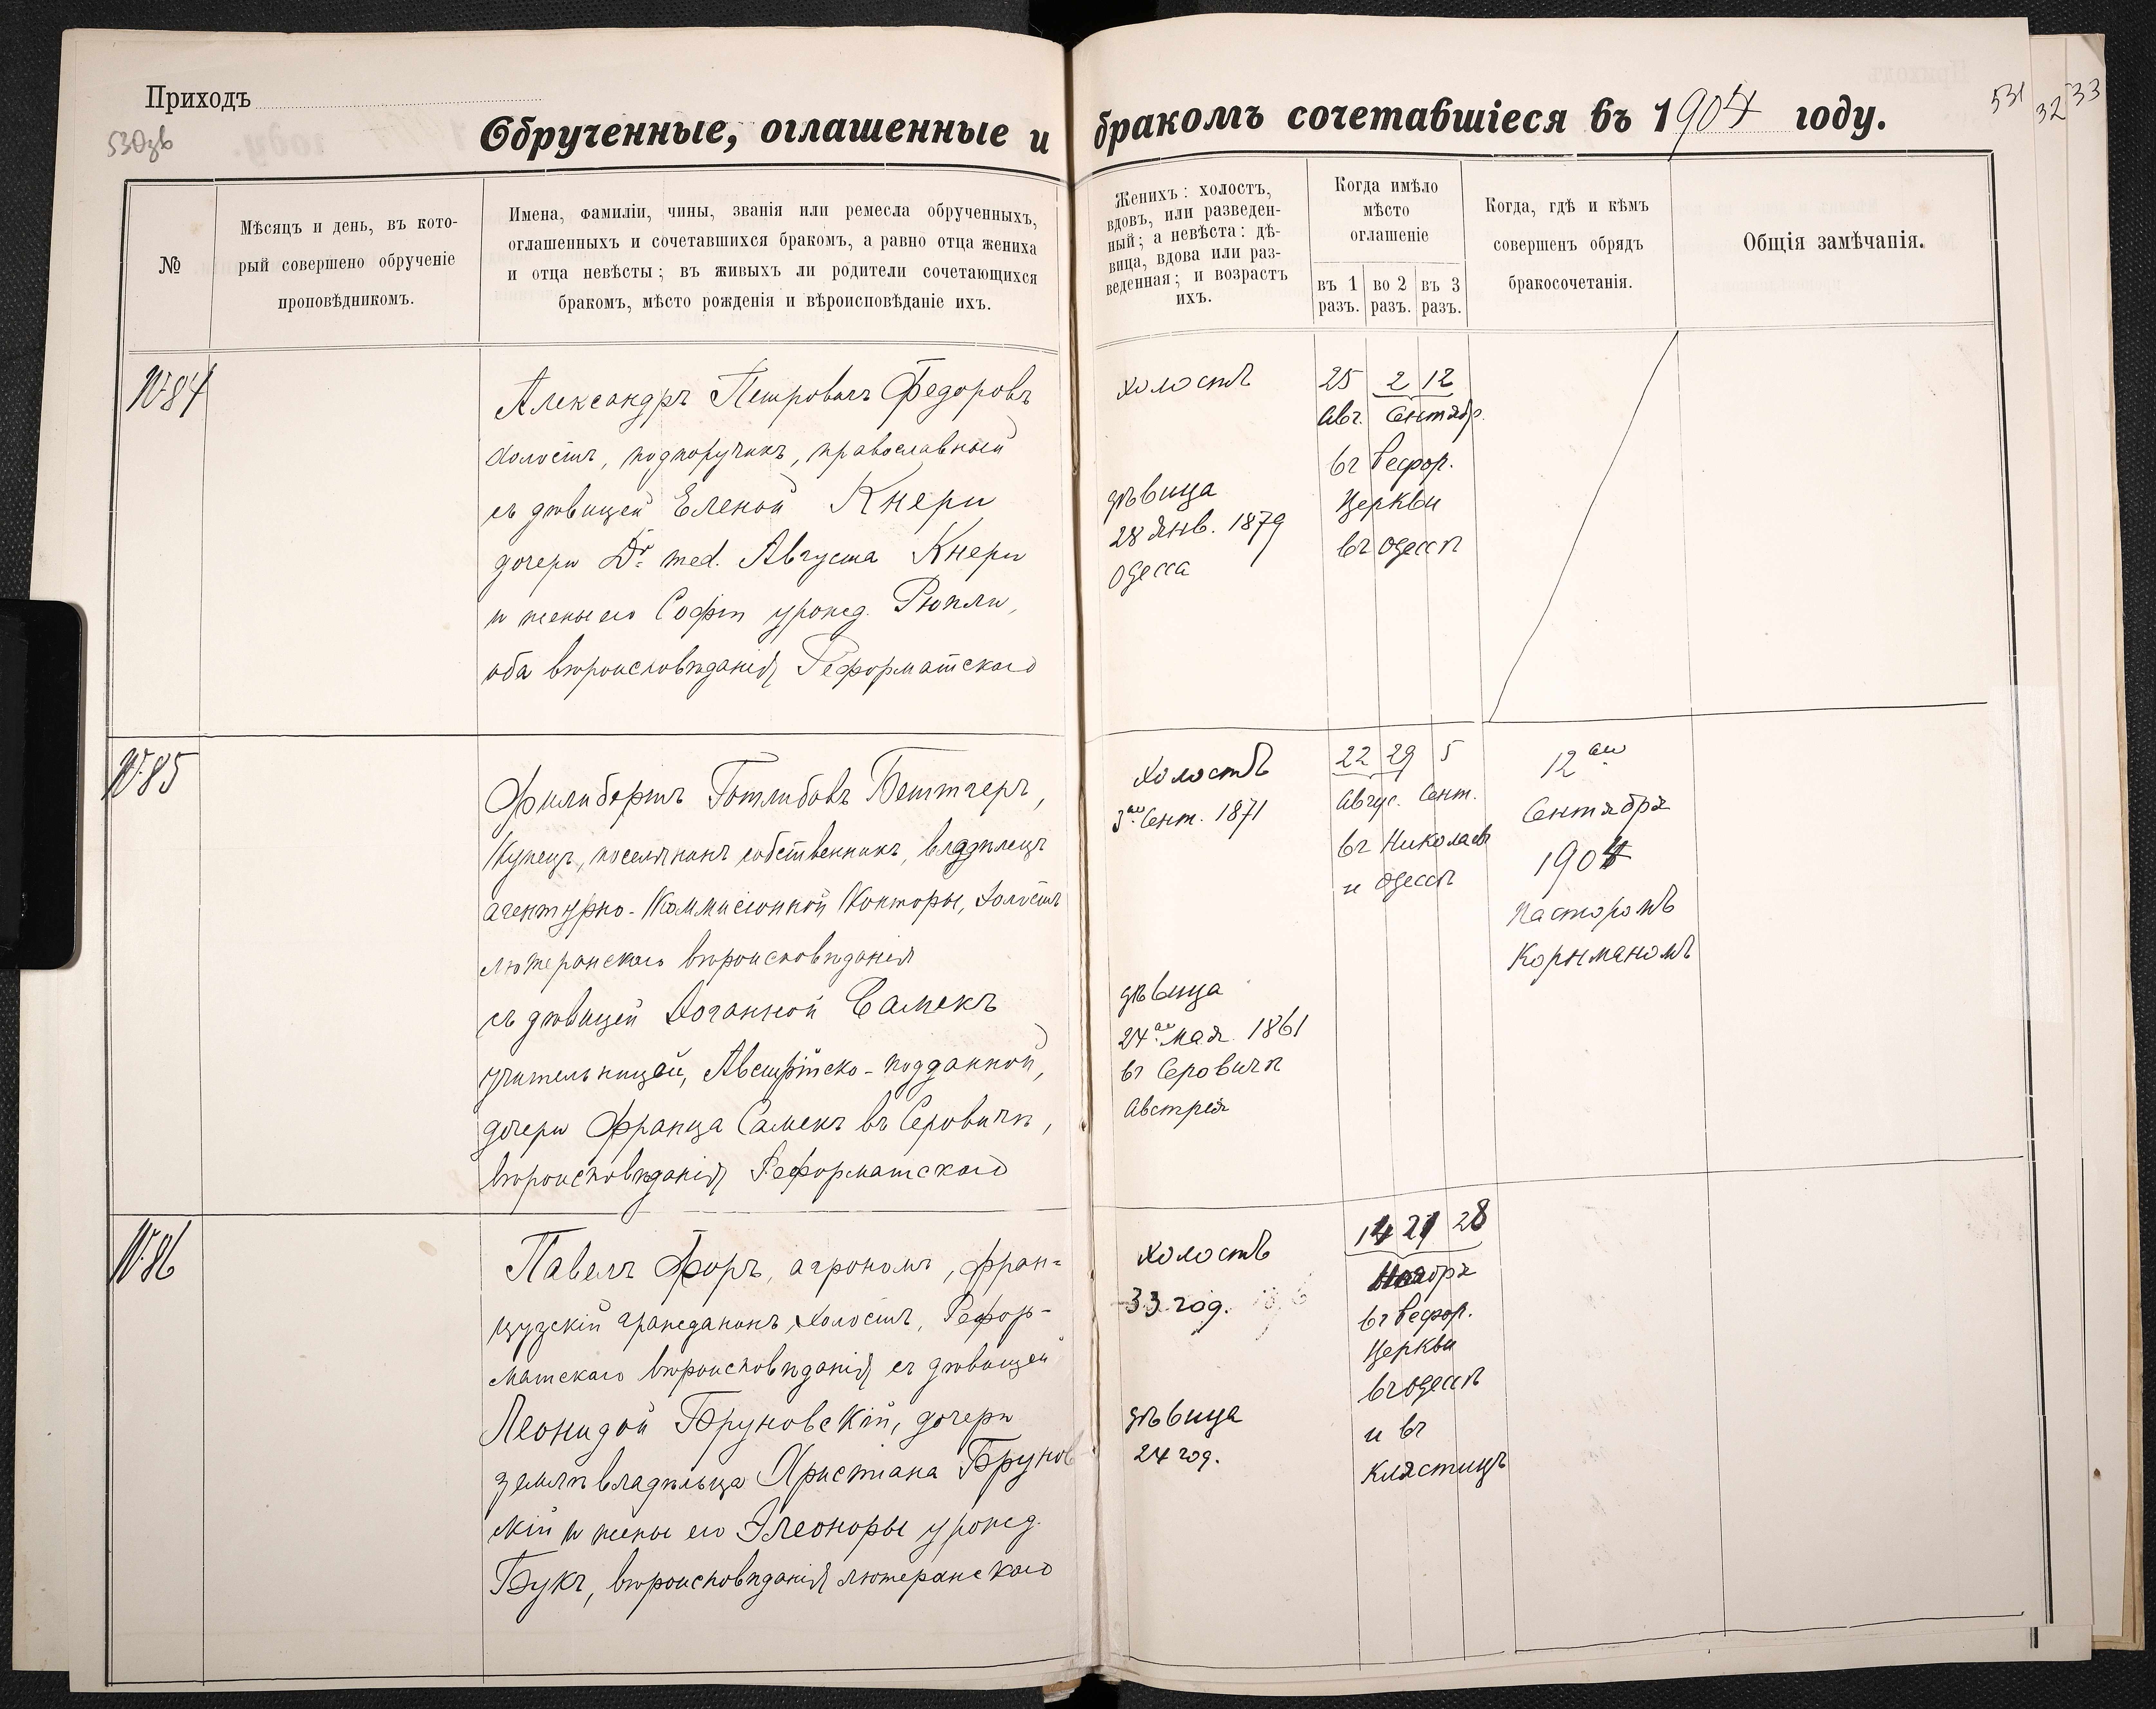 Приходъ
530зв
531
32
33
Обрученные, оглашенные и бракомъ сочетавшіеся въ 1904 году.
№
Мѣсяцъ и день, въ кото-
рый совершено обрученіе
проповѣдникомъ.
Имена, фамиліи, чины, званія или ремесла обрученныхъ,
оглашенныхъ и сочетавшихся бракомъ, а равно отца жениха
и отца невѣсты; въ живыхъ ли родители сочетающихся
бракомъ, мѣсто рожденія и вѣроисповѣданіе ихъ.
Женихъ: холостъ,
вдовъ, или разведен-
ный; а невѣста: дѣ-
вица, вдова или раз-
веденная; и возрастъ
ихъ.
Когда имѣло
мѣсто
оглашеніе
въ 1 разъ.
во 2 разъ.
въ 3 разъ.
Когда, гдѣ и кѣмъ
совершенъ обрядъ
бракосочетанія.
Общія замѣчанія.
№84
Александръ Петровичъ Федоровъ
холостъ, подпоручикъ, православный
съ дѣвицей Еленой Кнери
дочери Dr. med. Августа Кнери
и жены его Софіи урожд. Рюпли,
оба вѣроисповѣданія Реформатскаго
холостъ
дѣвица
28 Янв. 1879
Одесса
25 2 12
Авг. Сентябр.
въ Рефор.
Церкви
въ Одессѣ
№85
Филибертъ Готлибовъ Беттгеръ,
Купецъ, поселянинъ собственникъ, владѣлецъ
агентурно-Коммисіонной Конторы, холостъ
лютеранскаго вѣроисповѣданія
съ дѣвицей Іоганной Самекъ
учительницей, Австрійско-подданной,
дочери Франца Самекъ въ Серовичѣ,
вѣроисповѣданія Реформатскаго
Холостъ
3го Сент. 1871
дѣвица
24го Мая 1861
въ Серовичѣ
Австрія
22 29 5
Авгус. Сент.
въ Николаевѣ
и Одессѣ
12го
Сентября
1904
Пасторомъ
Корнманомъ
№86
Павелъ Форъ, агрономъ, фран=
цузскій гражданинъ, холостъ, Рефор-
матскаго вѣроисповѣданія съ дѣвицей
Леонидой Бруновскій, дочери
землѣвладѣльца Христіана Брунов
скій и жены его Элеоноры урожд.
Букъ, вѣроисповѣданія лютеранскаго
Холостъ
33 год.
дѣвица
24 год.
14 21 28
въ Рефор.
Церкви
въ Одессѣ
и въ
Клястицѣ